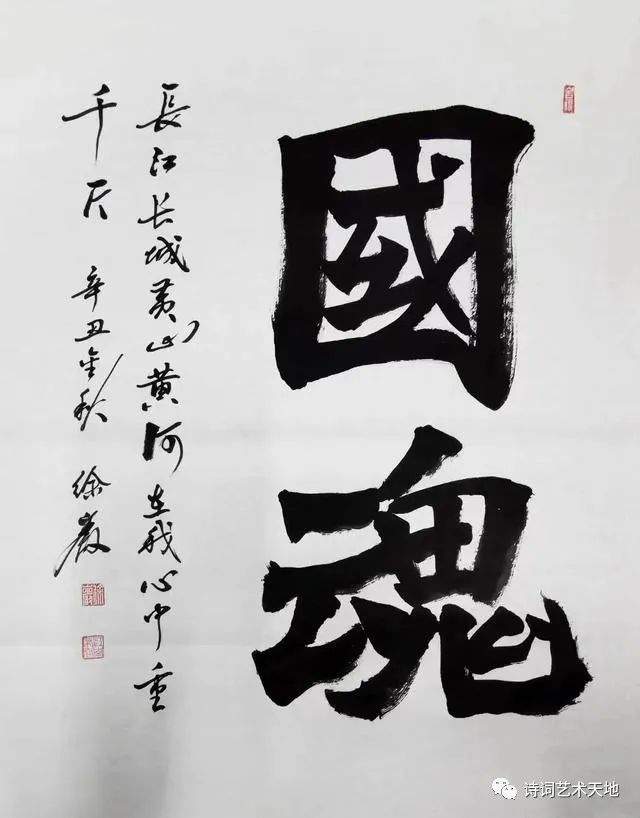 國魂
長江长城黄山黄河在我心中重
千斤 辛丑金秋 徐
诗词艺术天地